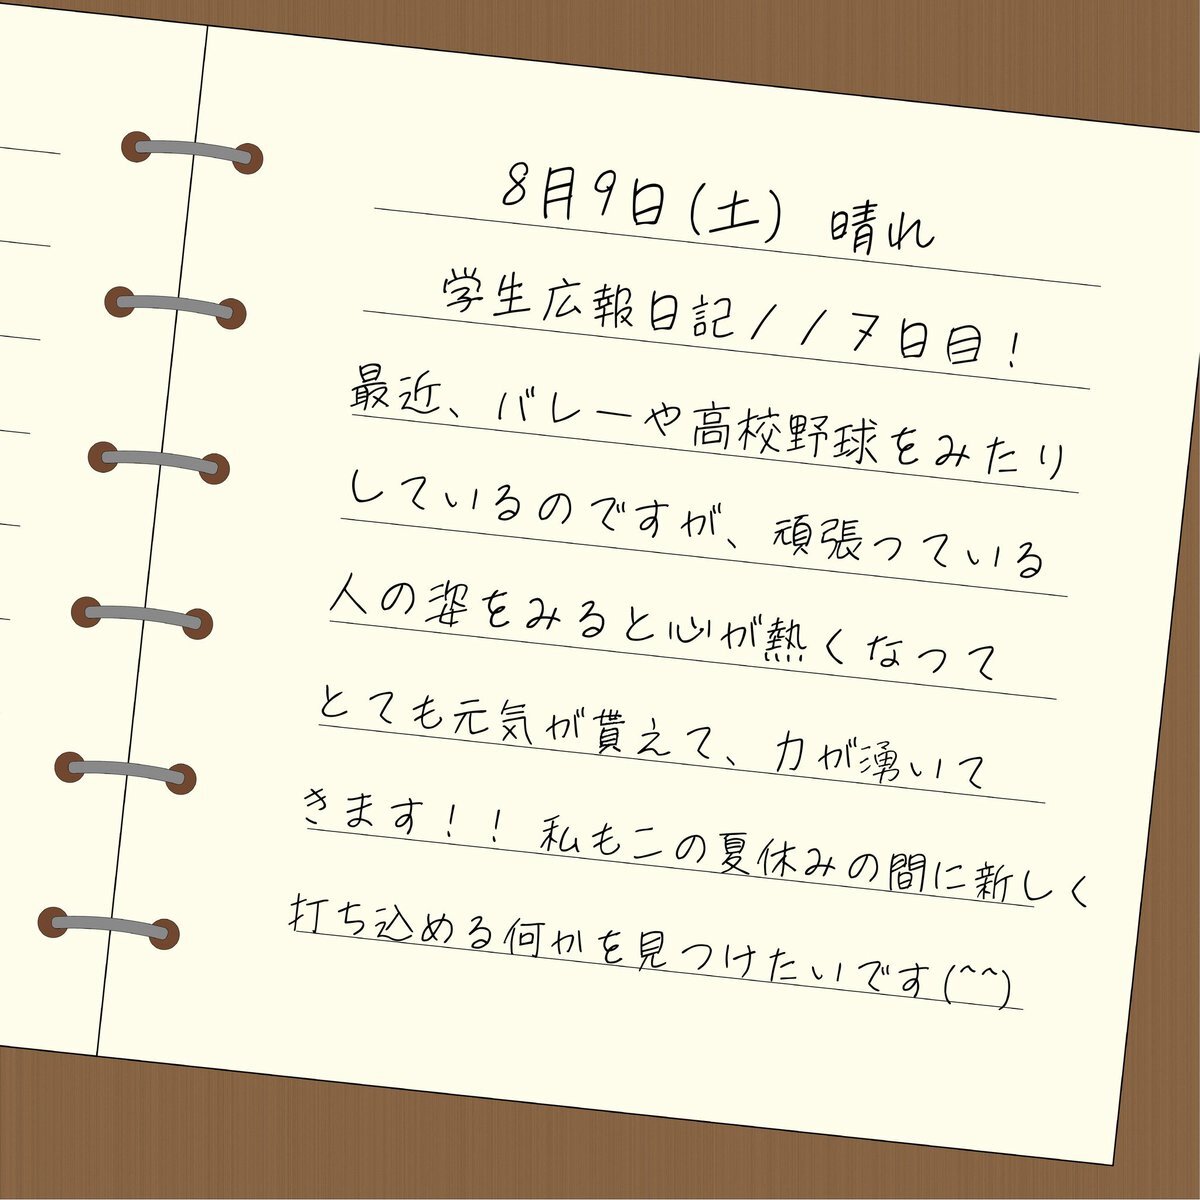 8月9日(土) 晴れ
学生広報日記117日目!
最近、バレーや高校野球をみたり
しているのですが、頑張っている
人の姿をみると心が熱くなって
とても元気が貰えて、力が湧いて
きます!! 私もこの夏休みの間に新しく
打ち込める何かを見つけたいです(^^)